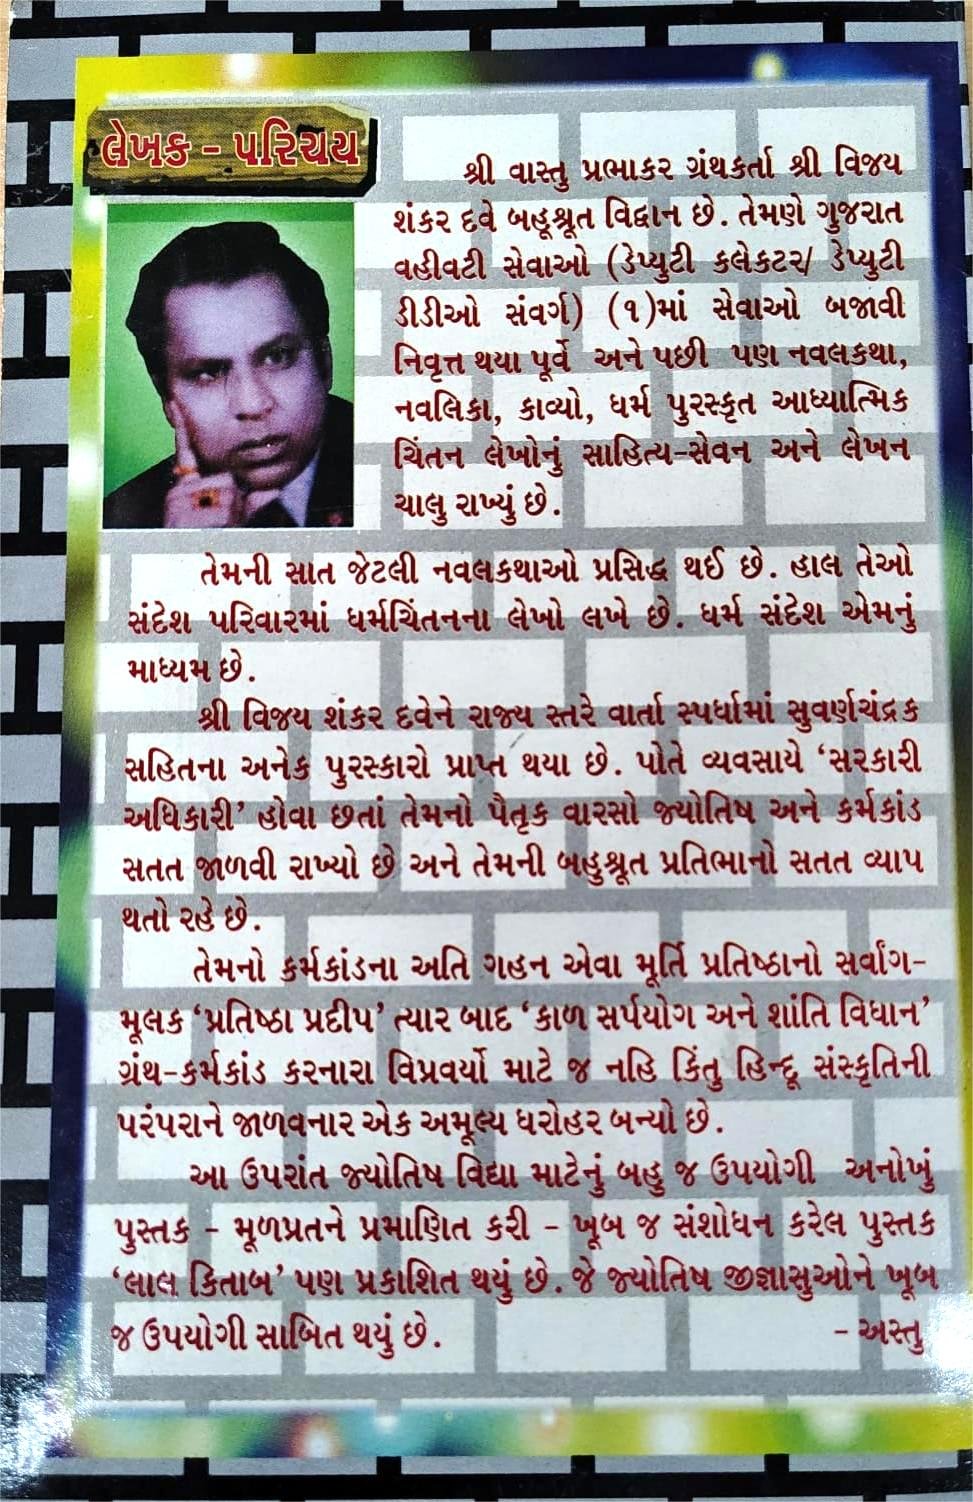 લેખક - પરિચય
શ્રી વાસ્તુ પ્રભાકર ગ્રંથકર્તા શ્રી વિજય
શંકર દવે બહૂશ્રૂત વિદ્વાન છે. તેમણે ગુજરાત
વહીવટી સેવાઓ (ડેપ્યુટી કલેકટર/ ડેપ્યુટી
ડીડીઓ સંવર્ગ) (૧)માં સેવાઓ બજાવી
નિવૃત્ત થયા પૂર્વે અને પછી પણ નવલકથા,
નવલિકા, કાવ્યો, ધર્મ પુરસ્કૃત આધ્યાત્મિક
ચિંતન લેખોનું સાહિત્ય-સેવન અને લેખન
ચાલુ રાખ્યું છે.
તેમની સાત જેટલી નવલકથાઓ પ્રસિદ્ધ થઈ છે. હાલ તેઓ
સંદેશ પરિવારમાં ધર્મચિંતનના લેખો લખે છે. ધર્મ સંદેશ એમનું
માધ્યમ છે.
શ્રી વિજય શંકર દવેને રાજ્ય સ્તરે વાર્તા સ્પર્ધામાં સુવર્ણચંદ્રક
સહિતના અનેક પુરસ્કારો પ્રાપ્ત થયા છે. પોતે વ્યવસાયે ‘સરકારી
અધિકારી’ હોવા છતાં તેમનો પૈતૃક વારસો જ્યોતિષ અને કર્મકાંડ
સતત જાળવી રાખ્યો છે અને તેમની બહુશ્રૂત પ્રતિભાનો સતત વ્યાપ
થતો રહે છે.
તેમનો કર્મકાંડના અતિ ગહન એવા મૂર્તિ પ્રતિષ્ઠાનો સર્વાંગ-
મૂલક ‘પ્રતિષ્ઠા પ્રદીપ’ ત્યાર બાદ ‘કાળ સર્પયોગ અને શાંતિ વિધાન’
ગ્રંથ-કર્મકાંડ કરનારા વિપ્રવર્યો માટે જ નહિ કિંતુ હિન્દૂ સંસ્કૃતિની
પરંપરાને જાળવનાર એક અમૂલ્ય ધરોહર બન્યો છે.
આ ઉપરાંત જ્યોતિષ વિદ્યા માટેનું બહુ જ ઉપયોગી અનોખું
પુસ્તક - મૂળપ્રતને પ્રમાણિત કરી - ખૂબ જ સંશોધન કરેલ પુસ્તક
‘લાલ કિતાબ’ પણ પ્રકાશિત થયું છે. જે જ્યોતિષ જીજ્ઞાસુઓને ખૂબ
જ ઉપયોગી સાબિત થયું છે. - અસ્તુ